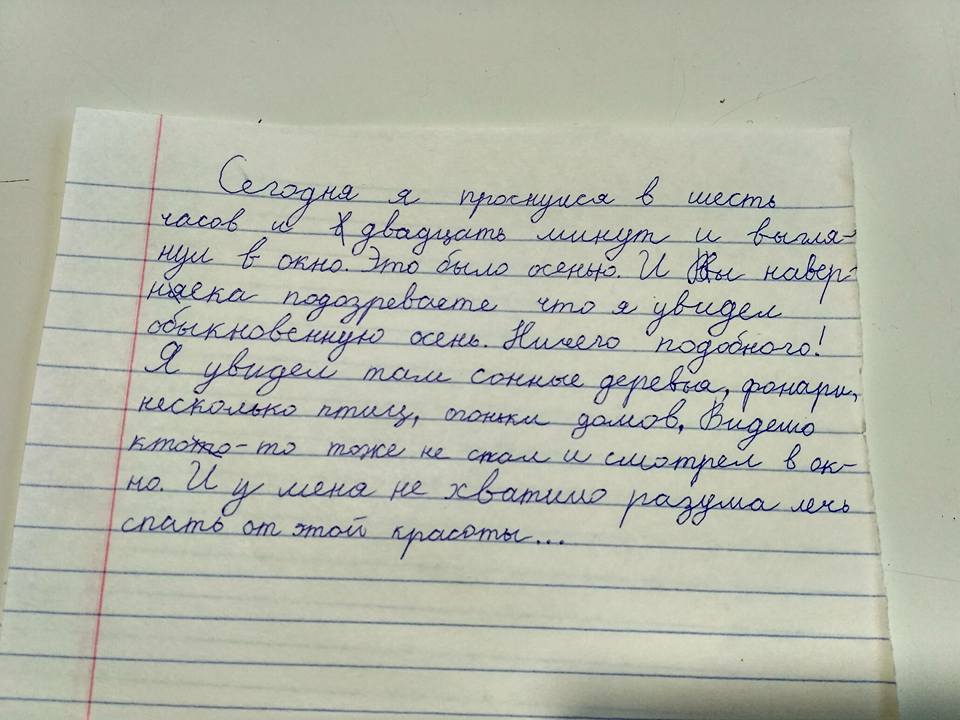 Сегодня я проснулся в шесть
часов и двадцать минут и выгля-
нул в окно. Это было осенью. И Вы навер-
няека подозреваете что я увидел
обыкновенную осень. Ничего подобного!
Я увидел там сонные деревья, фонари,
несколько птиц, огоньки домов, Видемо
ктото-то тоже не спал и смотрел в ок-
но. И у меня не хватило разума лечь
спать от этой красоты...